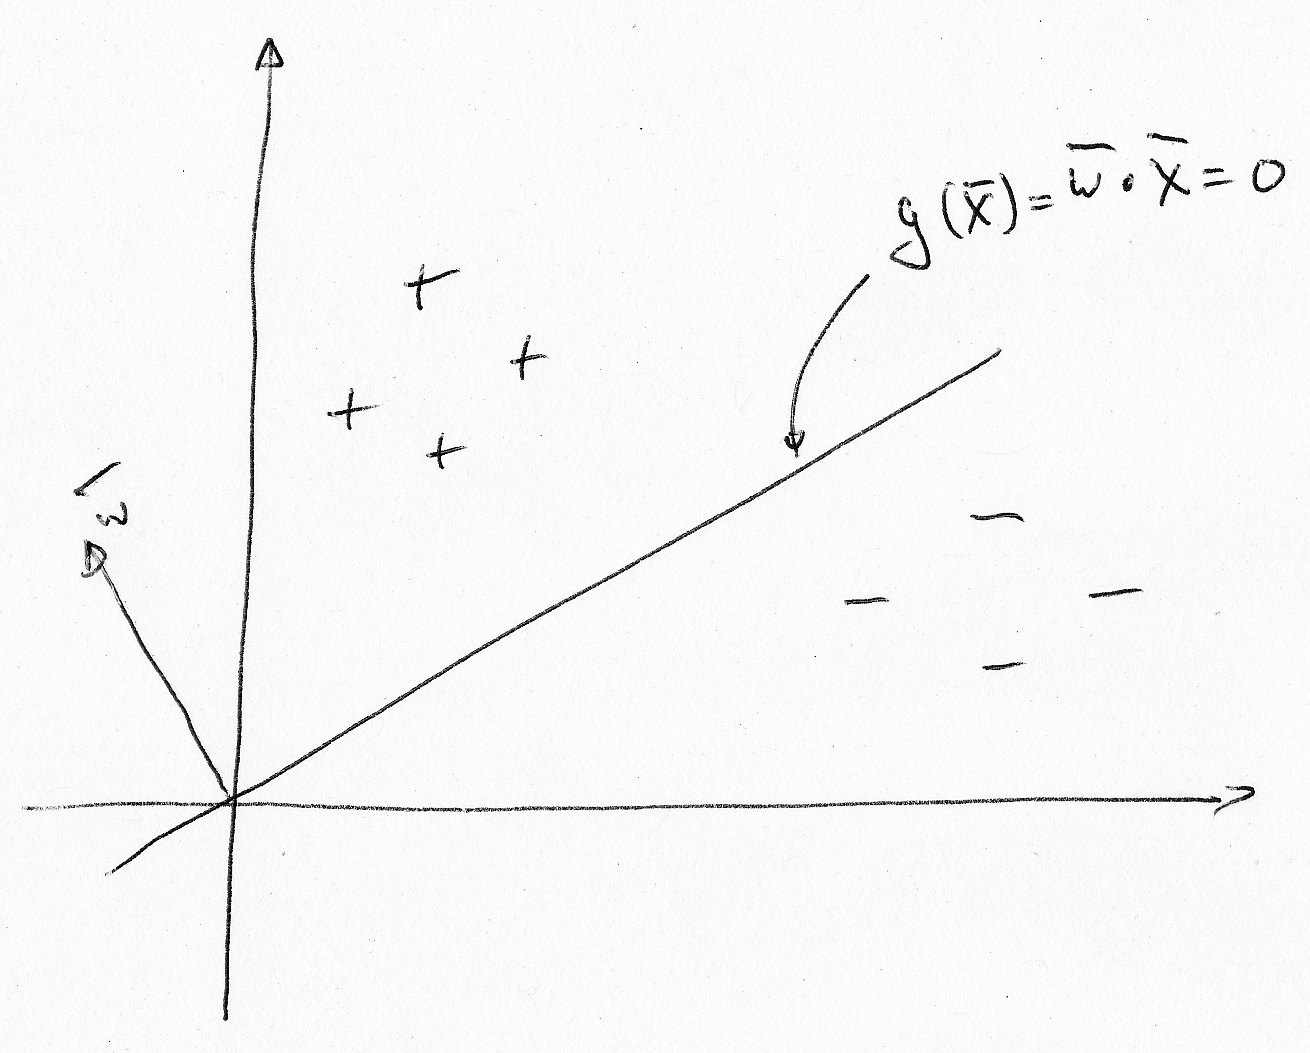 g(x̄) = w̄ · x̄ = 0
+
+
+
+
w̄
−
− −
−